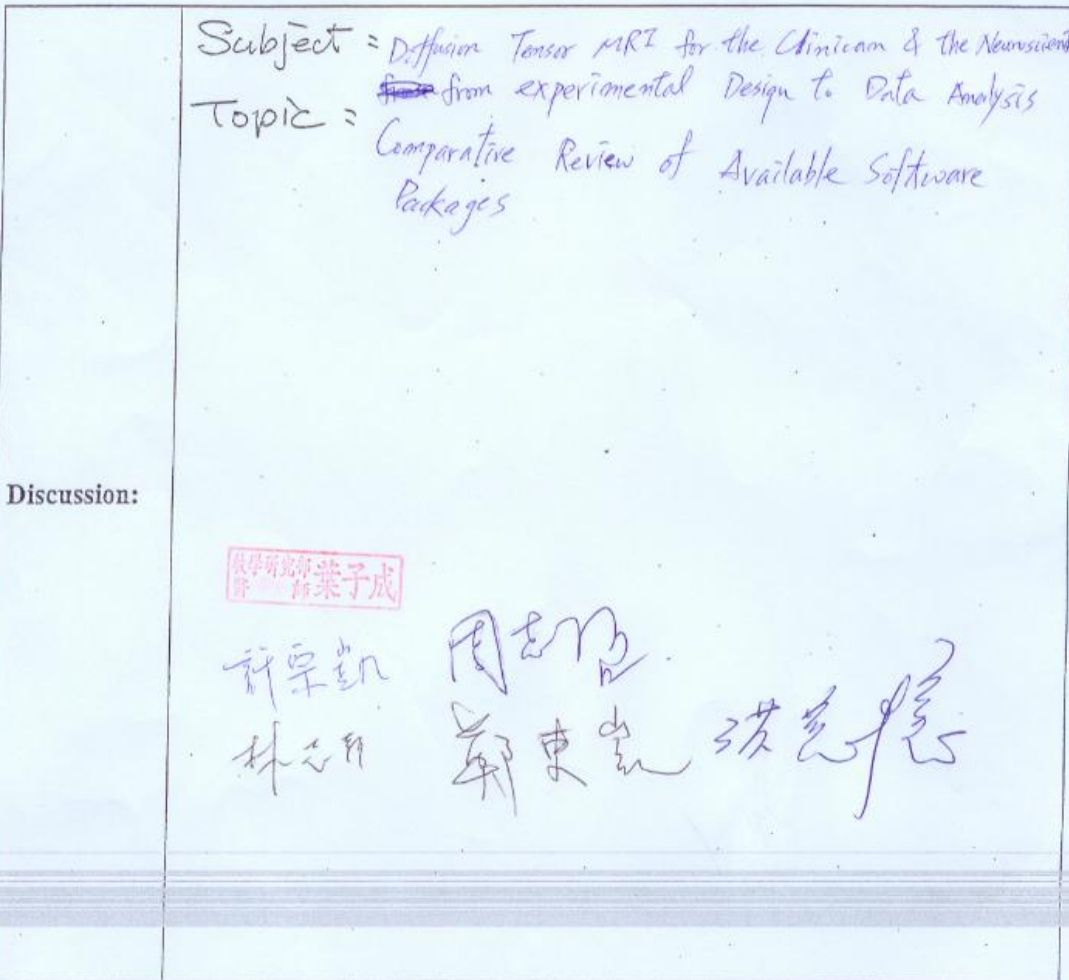 Subject : Diffusion Tensor MRI for the Clinican & the Neuroscient
from experimental Design to Data Analysis
Topic :
Comparative Review of Available Software
Packages
Discussion:
教學研究部
醫師 葉子成
林志
鄭東
洪